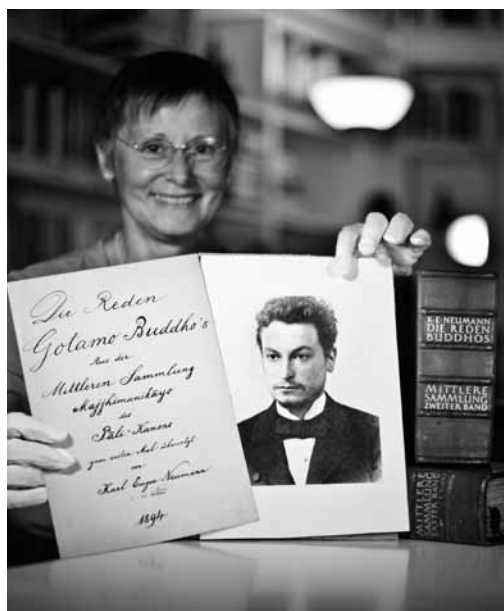 Die Reden
Gotamo Buddho's
Aus der
Mittleren Sammlung
Majjhimanikāyo
des
Pāli-Kanons
zum ersten Mal übersetzt
von
Karl Eugen Neumann
1894
K·E·NEUMANN
DIE REDEN
BUDDHOS
MITTLERE
SAMMLUNG
ZWEITER BAND
MITTLERE
SAMMLUNG